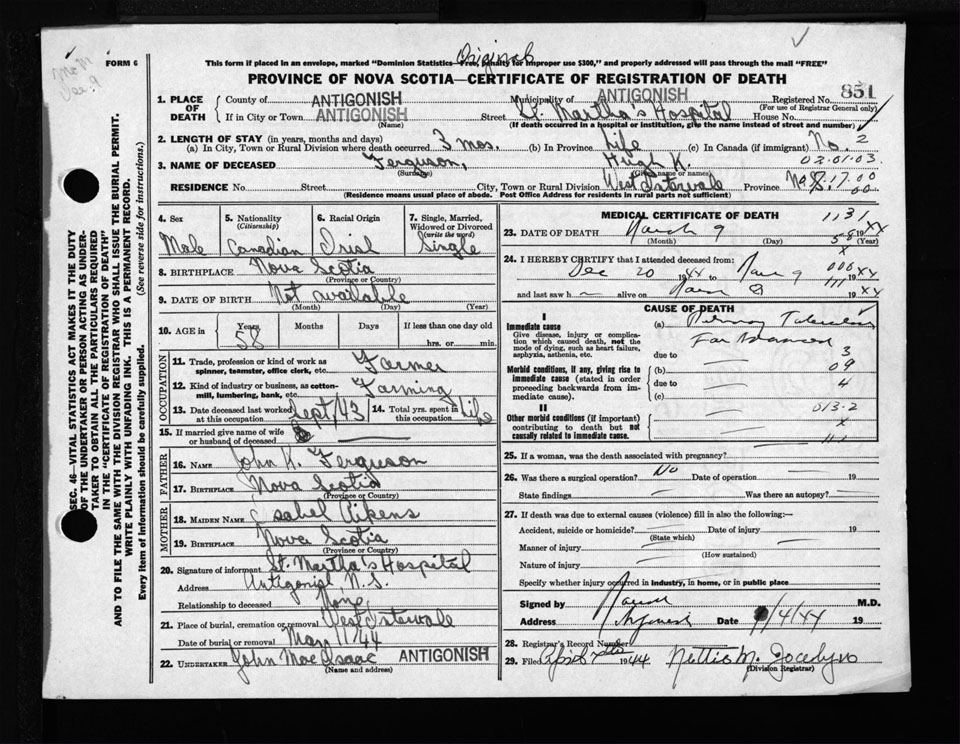 FORM 6
This form if placed in an envelope, marked "Dominion Statistics—Free, Penalty for improper use $300," and properly addressed will pass through the mail "FREE"
Original
PROVINCE OF NOVA SCOTIA—CERTIFICATE OF REGISTRATION OF DEATH
1. PLACE OF DEATH
County of ANTIGONISH Municipality of ANTIGONISH Registered No. 851
(For use of Registrar General only)
If in City or Town ANTIGONISH Street St. Martha's Hospital House No.
(Name) (If death occurred in a hospital or institution, give the name instead of street and number)
2. LENGTH OF STAY (in years, months and days)
(a) In City, Town or Rural Division where death occurred 3 mos. (b) In Province Life (c) In Canada (if immigrant) No. 2
3. NAME OF DECEASED Ferguson, Hugh K. 02.01.03.
(Surname) (Given name or names)
RESIDENCE No. Street City, Town or Rural Division West Intervale Province N.S. 17.00
00
(Residence means usual place of abode. Post Office Address for residents in rural parts not sufficient)
SEC. 46—VITAL STATISTICS ACT MAKES IT THE DUTY
OF THE UNDERTAKER OR PERSON ACTING AS UNDER-
TAKER TO OBTAIN ALL THE PARTICULARS REQUIRED
IN THE "CERTIFICATE OF REGISTRATION OF DEATH"
AND TO FILE THE SAME WITH THE DIVISION REGISTRAR WHO SHALL ISSUE THE BURIAL PERMIT.
WRITE PLAINLY WITH UNFADING INK. THIS IS A PERMANENT RECORD.
Every item of information should be carefully supplied. (See reverse side for instructions.)
4. Sex
Male
5. Nationality
(Citizenship)
Canadian
6. Racial Origin
Irish
7. Single, Married,
Widowed or Divorced
(write the word)
Single
8. BIRTHPLACE Nova Scotia
(Province or Country)
9. DATE OF BIRTH Not available
(Month) (Day) (Year)
10. AGE in Years Months Days If less than one day old
58 hrs. or min.
OCCUPATION
11. Trade, profession or kind of work as
spinner, teamster, office clerk, etc. Farmer
12. Kind of industry or business, as cotton-
mill, lumbering, bank, etc. Farming
13. Date deceased last worked
at this occupation Sept/43
14. Total yrs. spent in
this occupation Life
15. If married give name of wife
or husband of deceased
FATHER
16. NAME John K. Ferguson
17. BIRTHPLACE Nova Scotia
(Province or Country)
MOTHER
18. MAIDEN NAME Isabel Aikens
19. BIRTHPLACE Nova Scotia
(Province or Country)
20. Signature of informant St. Martha's Hospital
Address Antigonish N.S.
Relationship to deceased None
21. Place of burial, cremation or removal West Intervale
Date of burial or removal Mar 11/44
22. UNDERTAKER John MacIsaac ANTIGONISH
(Name and address)
MEDICAL CERTIFICATE OF DEATH 1131
23. DATE OF DEATH March 9 19XX
(Month) (Day) (Year)
24. I HEREBY CERTIFY that I attended deceased from:
Dec 20 1944 to Mar 9 19XX
and last saw h alive on Mar 8 19XX
CAUSE OF DEATH
I
Immediate cause
Give disease, injury or complica-
tion which caused death, not the
mode of dying, such as heart failure,
asphyxia, asthenia, etc.
(a) Pulmonary Tuberculosis
Far Advanced
due to 3
Morbid conditions, if any, giving rise to
immediate cause (stated in order
proceeding backwards from im-
mediate cause).
(b) 09
due to 4
(c)
II
Other morbid conditions (if important)
contributing to death but not
causally related to immediate cause.
013-2
X
25. If a woman, was the death associated with pregnancy?
26. Was there a surgical operation? No Date of operation 19
State findings Was there an autopsy?
27. If death was due to external causes (violence) fill in also the following:—
Accident, suicide or homicide? Date of injury 19
(State which)
Manner of injury
(How sustained)
Nature of injury
Specify whether injury occurred in industry, in home, or in public place
Signed by M.D.
Address Antigonish Date /4/44
28. Registrar's Record Number
29. Filed April 1944 Nettie M. Jocelyn
(Division Registrar)